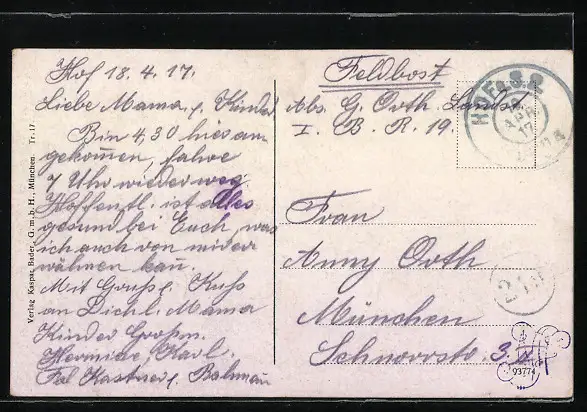 Hof 18.4.17.
Liebe Mama u. Kinder
Bin 4,30 hies an
gekommen, fahre
7 Uhr wieder weg.
Hoffentl. ist alles
gesund bei Euch, was
ich auch von mir er
wähnen kan.
Mit Gruß u. Kuß
an Dich l. Mama
Kinder Großm.
Hermine, Karl.
Fal Kastner u.
Feldpost
Abs. G. Orth. Landst.
I. B. R. 19.
Frau
Anny Orth
München
Schnorrstr. 3. IV
Verlag Kaspar Bader, G. m. b. H., München. Tr. 17
APR
17
93774